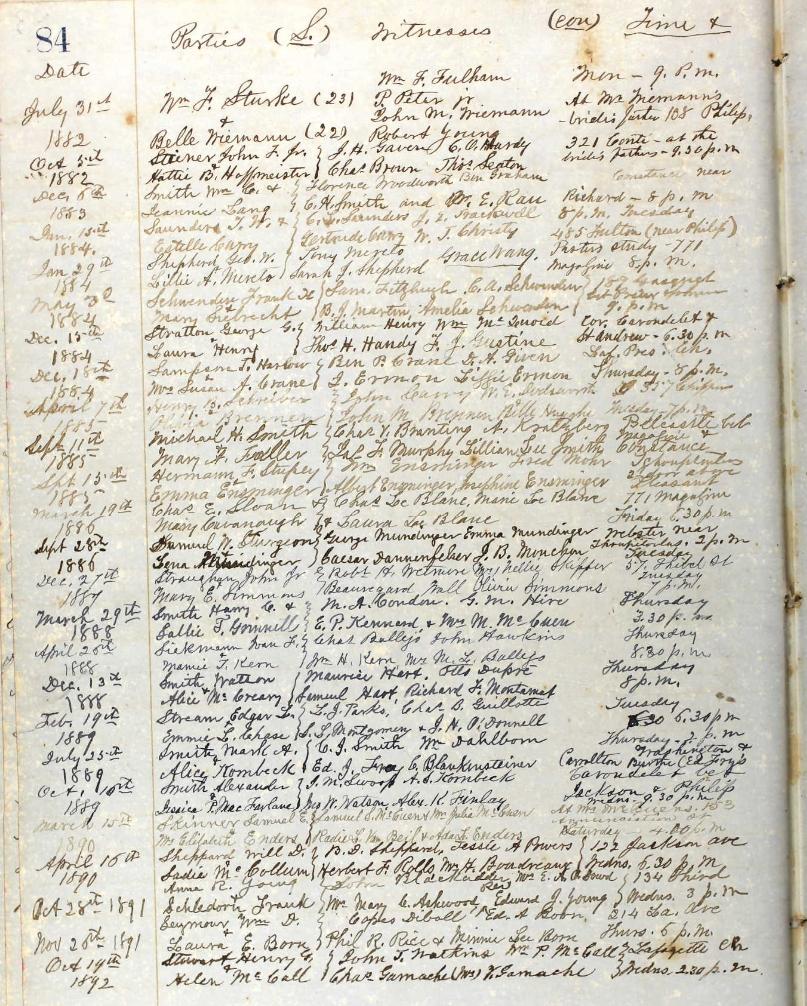 84 Parties (S.) Witnesses (con) Time &
Date
July 31st 1882 Wm F. Sturke (23) & Belle Wiemann (22) Wm F. Fulham P. Peter jr John M. Wiemann Robert Young Mon - 9. P.m. At Mr Wiemann's - brides father 108 Philip.
Oct 5th 1882 Steiner John F. Jr. Hattie B. Hoffmeister J. H. Gaven C. O. Hardy Chas Brown Thos Seaton 321 Conti - at the brides fathers - 9.30 p.m
Dec. 6th 1883 Smith Wm C. & Jeannie Lang Florence Woodworth Ben Graham C. H. Smith and Dr. E. Rau Constance near Richard - 8 p. m
Jan. 15th 1884. Saunders T. H. & Estelle Carry C. L. Saunders Gertrude Carry W. T. Christy 8 p.m. Tuesday 485 Fulton (near Philip)
Jan 29th 1884 Shepherd Geo. W. Lillie A. Merelo Tony Merelo Grace Wang. Sarah J. Shepherd Pastors study - 771 Magazine 8 p. m.
May 3d 1884 Schwenden Frank H Mary Siebrecht Sam. Fitzhugh C. A. Schwenden B. J. Martin, Amelia Schwenden 9. p. m
Dec. 15th 1884 Stratton George G. Laura Henry William Henry Wm Thos H. Handy F. J. Gustine Cor. Carondelet & St Andrew - 6.30 p. m
Dec. 18th 1884 Sampson T. Harlow Mrs Susan A. Crane Ben P. Crane D. A. Given J. Ermon Effie Ermon Laf. Pres. Ch. Thursday - 8 p. m.
April 7th 1885 Henry B. Schriever Brenner John M. Brenner
Sept 11th 1885 Michael H. Smith Mary A. Faller Chas V. Branting A. Kratzberg Jas F. Murphy Lillian Lee Smith Bellcastle bet Magazine & Constance
Sept 15th 1885 Hermann F. Stupey Emma Ensminger Wm Ensminger Fred Mohr Albert Ensminger Josephine Ensminger Tchoupitoulas 2d door above Pleasant
March 19th 1886 Chas E. Sloan & Mary Cavanaugh Chas Lee Blanc, Marie Lee Blanc Laura Lee Blanc 771 Magazine Friday 6.30 p. m
Sept 28th 1886 Samuel W. Sturgeon & Lena Mundinger George Mundinger Emma Mundinger Caesar Dannenfelser J. B. Munchin Webster near Tchoupitoulas. 2 p. m. Tuesday
Dec. 27th 1887 Straughan John Jr & Mary E. Simmons Robt H. Wetmore Mrs Nellie Skipper Beauregard Wall Olivia Simmons 57 Thibel St Tuesday 7 p.m.
March 29th 1888 Smith Harry C. & Sallie T. Grinnell M. A. Condon. G. M. Hire E. P. Kennard & Mrs M. McEuen Thursday 3.30 p. m.
April 26th 1888 Siekmann Wan F. Mamie J. Kern Chas Ballejs John Hawkins Wm H. Kern Mrs M. L. Ballejs Thursday 8.30 p. m.
Dec. 13th 1888 Smith, Watson & Alice McCreary Maurice Hart. Otto Dupre Samuel Hart, Richard F. Montamat Thursday 8 p.m.
Feb. 19th 1889 Stream Edgar L. Emmie L. Chase L. J. Parks, Chas B. Guillotte L. S. Montgomery & J. H. O'Donnell Tuesday 6.30 p m
July 25th 1889 Smith Mark A. & Alice Kornbeck C. J. Smith Wm Dahlborn Ed. J. Frey C. Blankensteiner Thursday - 7. p. m Washington & Carrollton
Oct. 16th 1889 Smith Alexander & Jessica P. MacFarlane J. M. Sworp A. S. Kornbeck Jas W. Watson, Alex. K. Finlay Carondelet bet Jackson & Philip Wedns - 9.30 p. m.
March 15th 1890 Skinner Samuel E. Mrs Elizabeth Enders Samuel S. McEuen & Mrs Julia McEuen & Adam F. Enders Annunciation St Saturday - 4.00 p. m
April 16th 1890 Sheppard Will D. Sadie McCollum B. D. Sheppard, Tessie A Powers Herbert F. Rolls, Wm H. Boudreaux 122 Jackson ave Wedns. 6.30 p. m
Oct 28th 1891 Anna R. Young Schledorn Frank John Blackadder Mrs E. A. Dowd Mrs Mary C. Ashwood, Edward J. Young 134 Third Wedns. 3 p. m
Nov 26th 1891 Seymour Wm D. & Laura E. Born Copes Diboll Rev Ed. A. Born, Phil R. Rice & Minnie Lee Born 214 La. Ave Thurs. 6 p. m.
Oct 19th 1892 Stewart Henry G. & Helen McCall John T. Watkins Wm P. McCall Chas Gamache (Mrs) V. Gamache Lafayette Ch Wedns. 2.30 p. m.